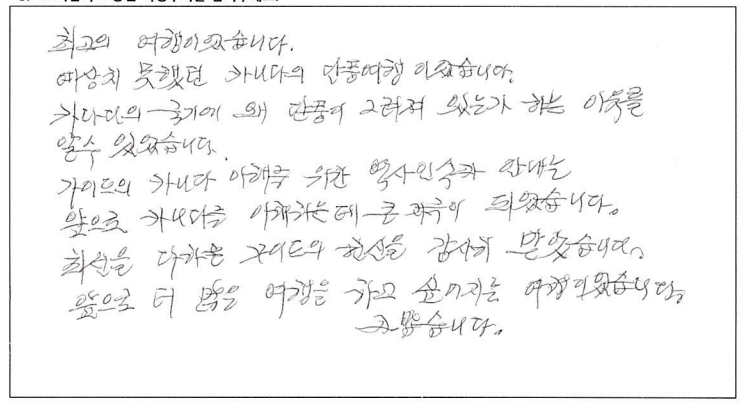 최고의 여행이었습니다.
예상치 못했던 카나다의 단풍여행 이였습니다.
카나다의 국기에 왜 단풍이 그려져 있는가 하는 이유를
알수 있었습니다.
가이드의 카나다 이해를 위한 역사인식과 안내는
앞으로 카나다를 이해하는데 큰 도움이 되었습니다.
최선을 다하는 가이드의 헌신을 감사히 받았습니다.
앞으로 더 많은 여행을 하고 싶어지는 여행이었습니다.
고맙습니다.